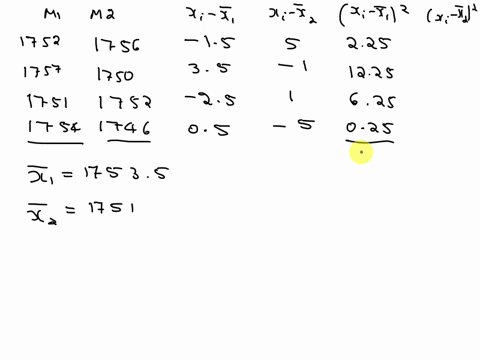 M1 M2 xi-x̄1 xi-x̄2 (xi-x̄1)² (xi-x̄2)²
1752 1756 -1.5 5 2.25
1757 1750 3.5 -1 12.25
1751 1752 -2.5 1 6.25
1754 1746 0.5 -5 0.25
x̄1 = 1753.5
x̄2 = 1751